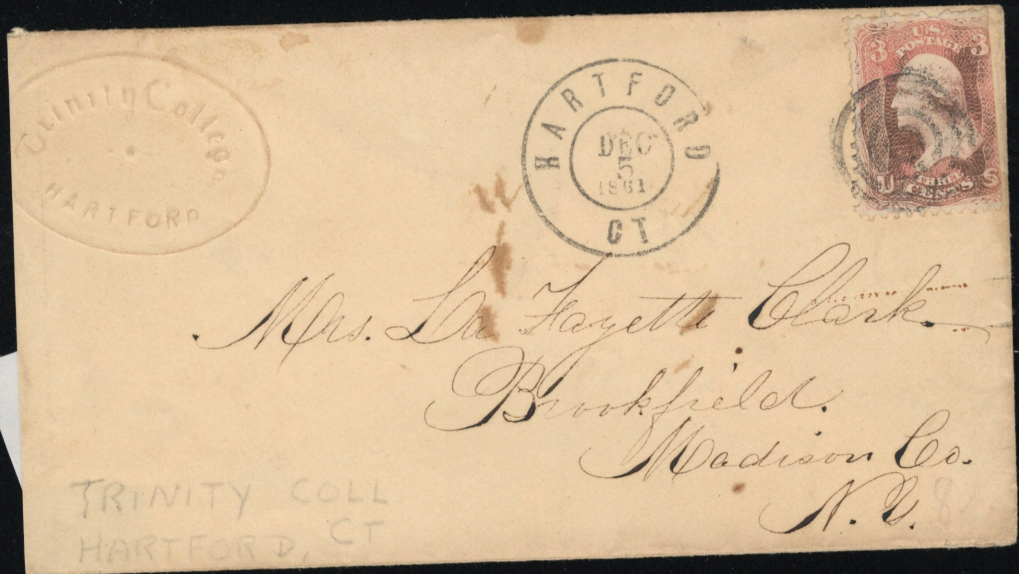 Trinity College.
HARTFORD
HARTFORD
DEC
5
1861
CT
3 U.S. 3
POSTAGE
THREE
U CENTS S
Mrs. La Fayette Clark.
Brookfield.
Madison Co.
N.Y.
TRINITY COLL
HARTFORD, CT